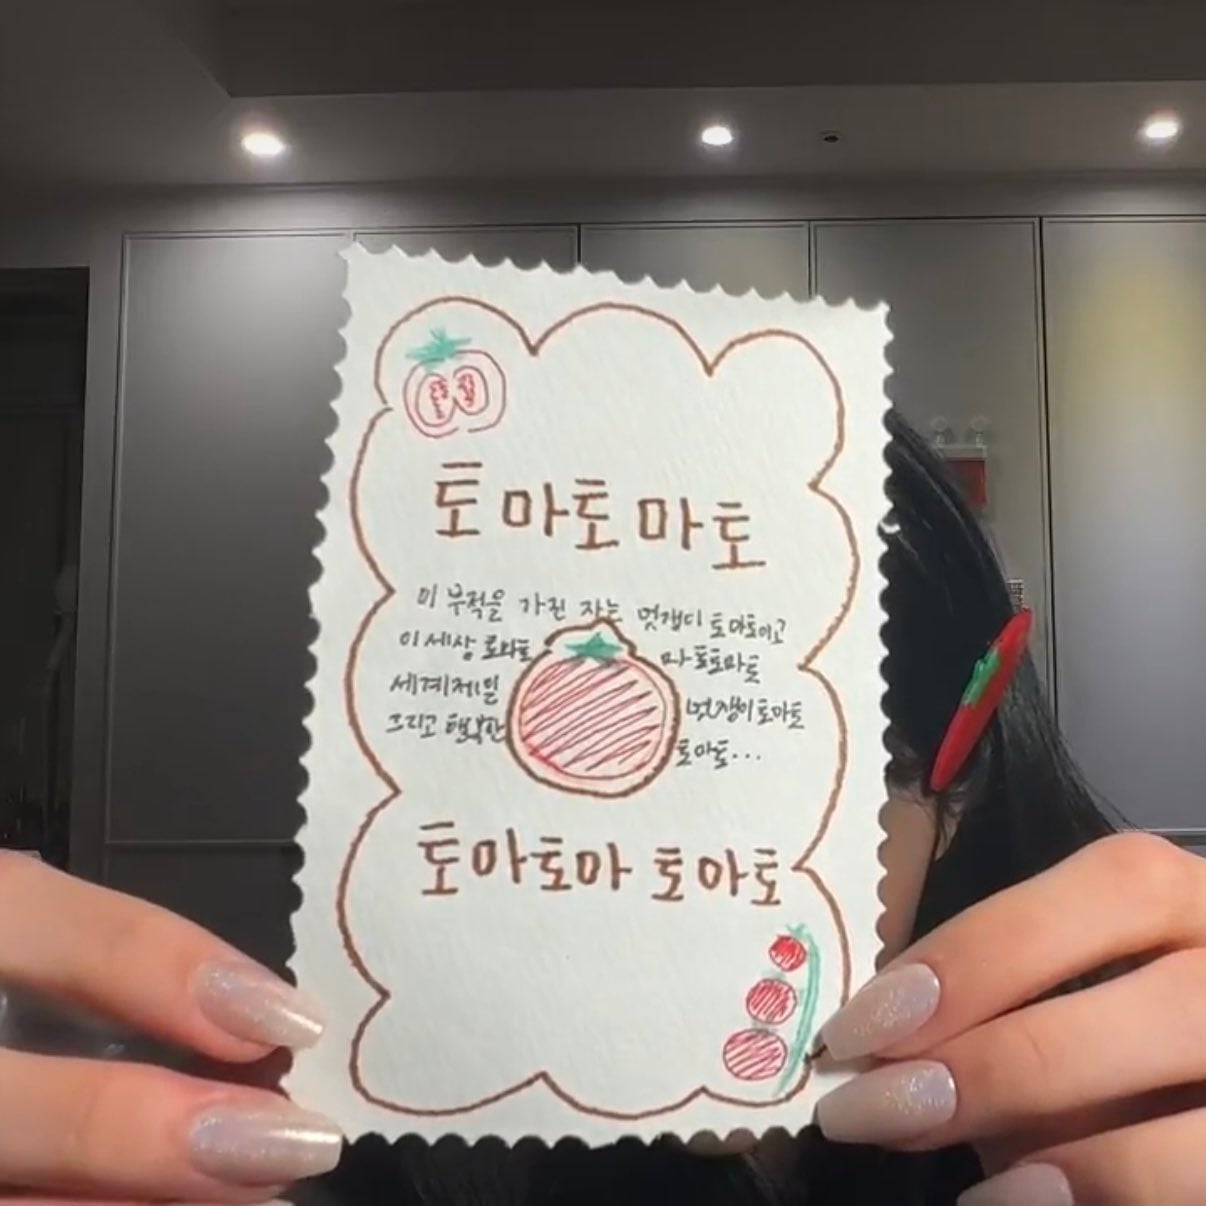 토마토마토
이 부적을 가진 자는 멋쟁이 토마토이고
이 세상 토마토 마토토마토
세계제일 멋쟁이토마토
그리고 행복한 토마토...
토마토마 토마토